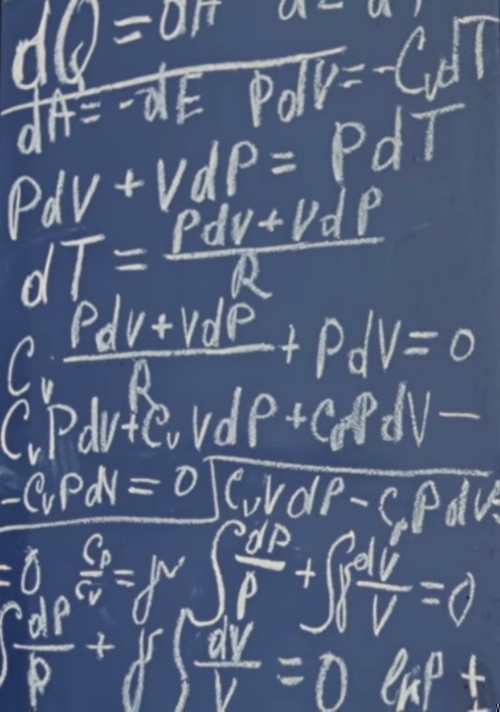 dQ = dA
dA = -dE PdV = -CvdT
PdV + VdP = PdT
dT = PdV + VdP / R
Cv · PdV + VdP / R + PdV = 0
CvPdV + CvVdP + CpPdV -
-CvPdV = 0 CvVdP - CpPdV
= 0 Cp/Cv = γ ∫ dP/P + ∫γ dV/V = 0
∫ dP/P + γ ∫ dV/V = 0 lnP +